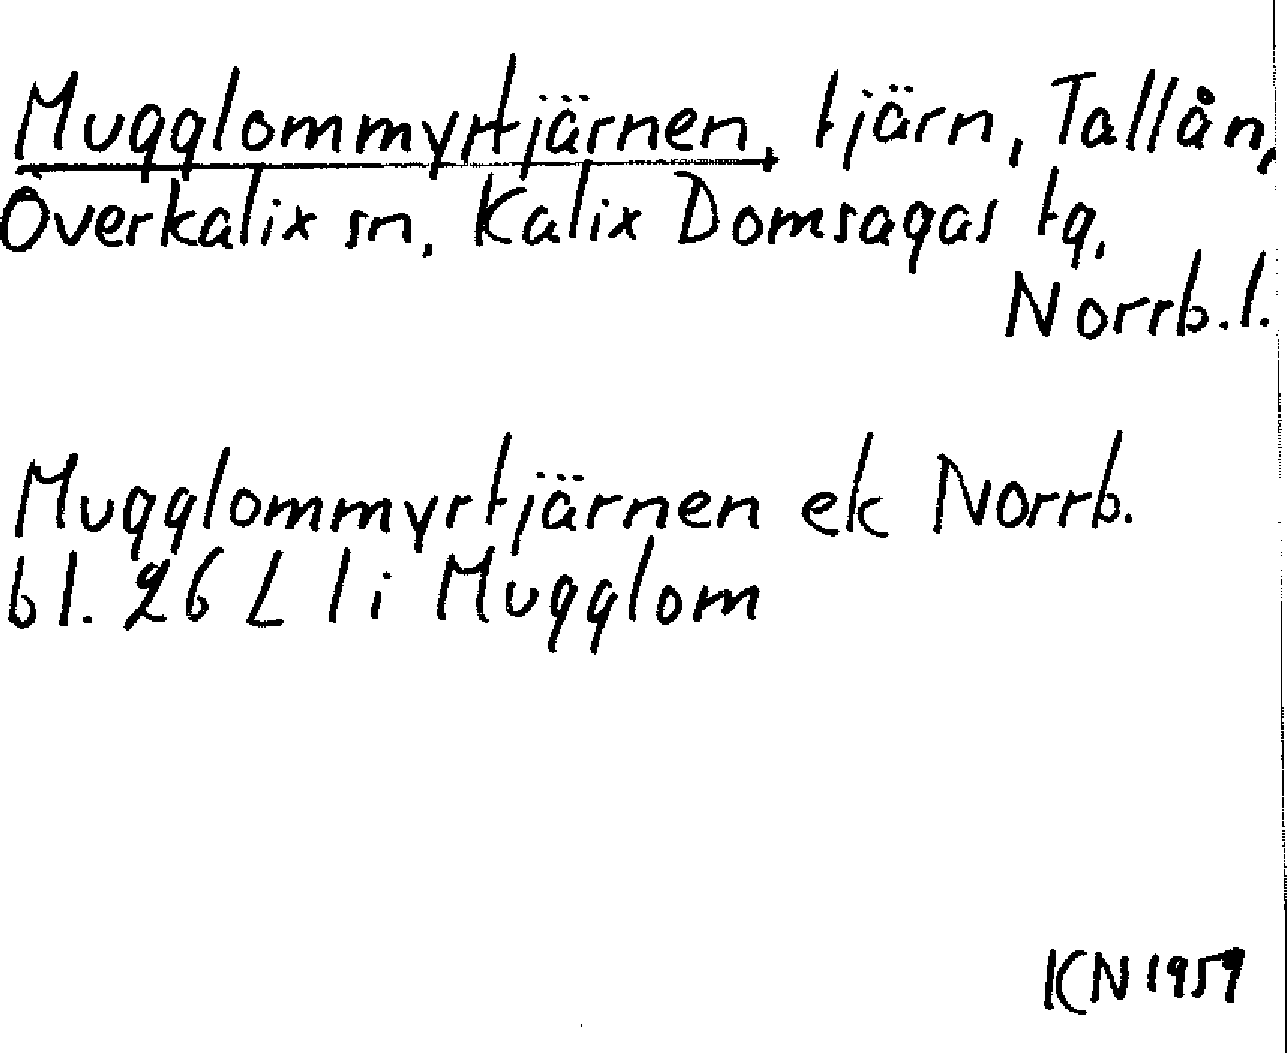 Mugglommyrtjärnen, tjärn, Tallån,
Överkalix sn, Kalix Domsagas tg,
Norrb. l.
Mugglommyrtjärnen ek Norrb.
bl. 26 L l i Mugglom
KN 1959